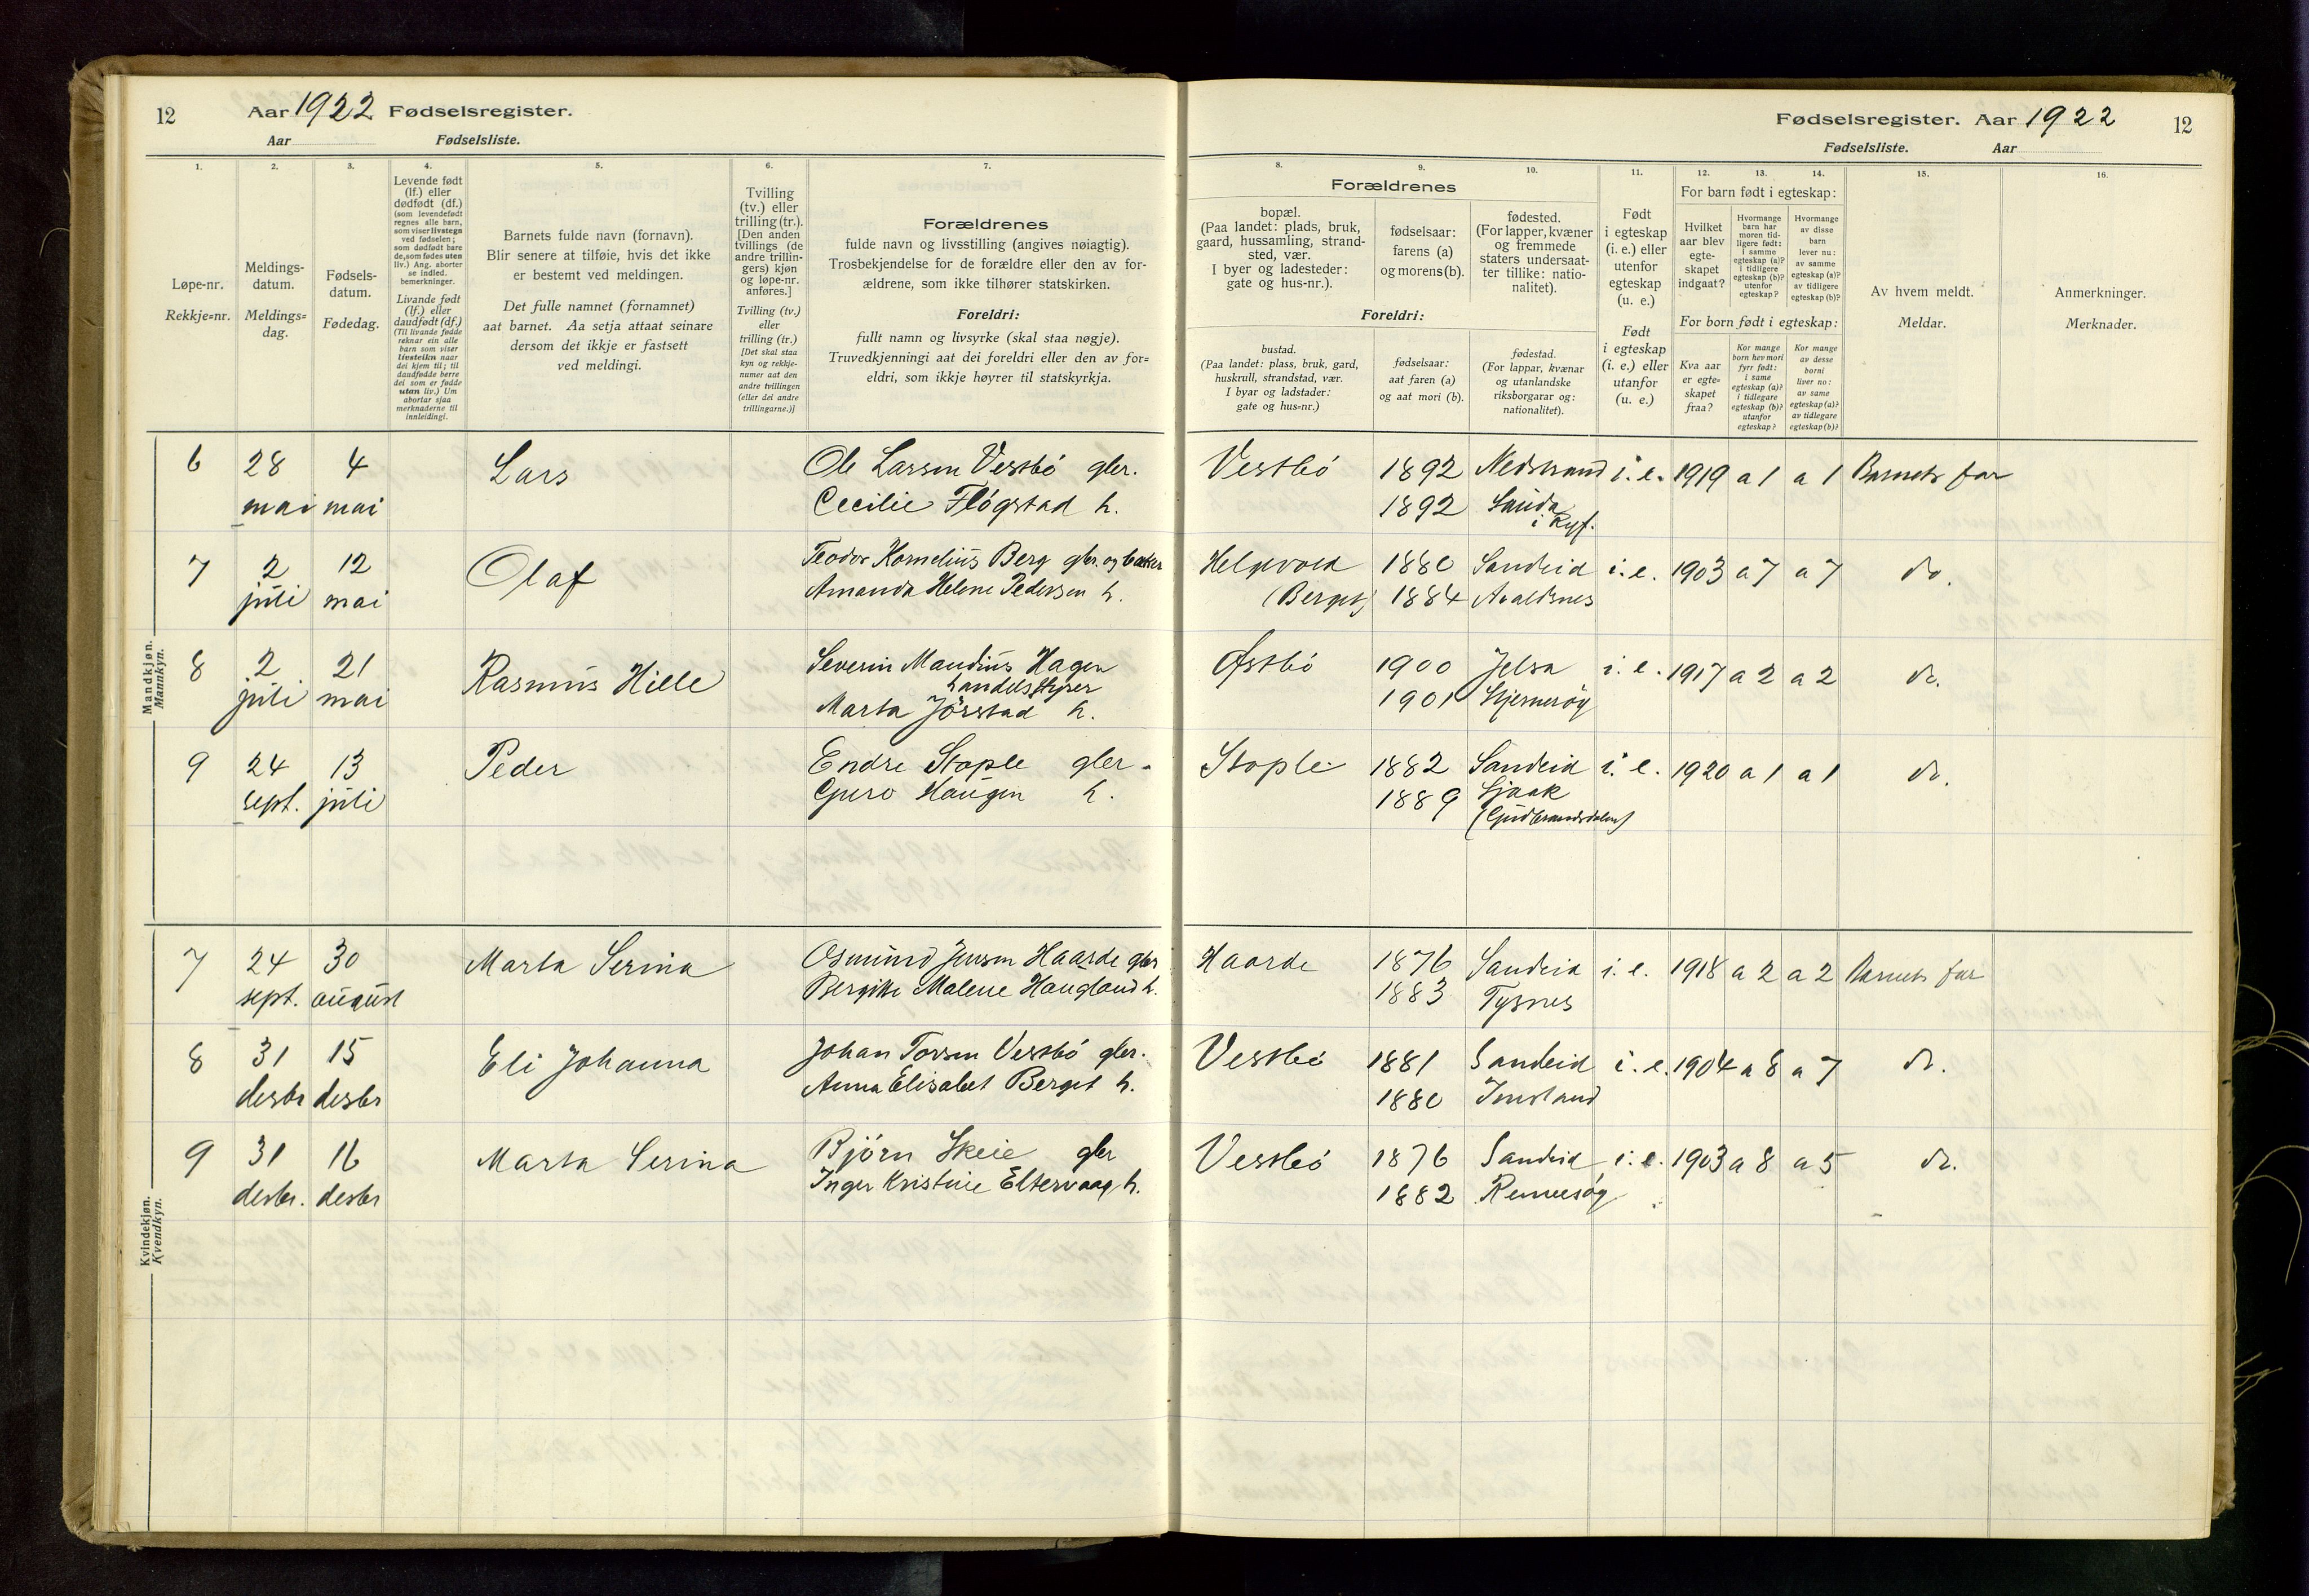 12 Aar 1922 Fødselsregister.
Aar Fødselsliste.
1. 2. 3. 4. 5. 6. 7.
Løpe-nr.
Rekkje=nr.
Meldings-
datum.
Meldings=
dag.
Fødsels-
datum.
Fødedag.
Levende født
(lf.) eller
dødfødt (df.)
(som levendefødt
regnes alle barn,
som viser livstegn
ved fødselen;
som dødfødt bare
de, som fødes uten
liv.) Ang. aborter
se indled.
bemerkninger.
Livande født
(lf.) eller
daudfødt (df.)
(Til livande fødde
reknar ein alle
barn som viser
livsteikn naar
dei kjem til; til
daudfødde berre
dei som er fødde
utan liv.) Um
abortar sjaa
merknaderne til
innleidingi.
Barnets fulde navn (fornavn).
Blir senere at tilføie, hvis det ikke
er bestemt ved meldingen.
Det fulle namnet (fornamnet)
aat barnet. Aa setja attaat seinare
dersom det ikkje er fastsett
ved meldingi.
Tvilling
(tv.) eller
trilling (tr.).
[Den anden
tvillings (de
andre trillin-
gers) kjøn
og løpe-nr.
anføres.]
Tvilling (tv.)
eller
trilling (tr.)
[Det skal staa
kyn og rekkje-
numer aat den
andre tvillingen
(eller dei andre
trillingarne.)]
Forældrenes
fulde navn og livsstilling (angives nøiagtig).
Trosbekjendelse for de forældre eller den av for-
ældrene, som ikke tilhører statskirken.
Foreldri:
fullt namn og livsyrke (skal staa nøgje).
Truvedkjenningi aat dei foreldri eller den av for=
eldri, som ikkje høyrer til statskyrkja.
Mandkjøn.
Mannkyn.
6 28 4 Lars Ole Larsen Vestbö gbr.
mai mai Cecilie Flögstad h.
7 2 12 Olaf Teodor Kornelius Berg gbr. og baker
juli mai Amanda Helene Pedersen h.
8 2 21 Rasmus Hille Severin Maudius Hagen
handelsstyrer
juli mai Marta Jörstad h.
9 24 13 Peder Endre Stople gbr.
sept. juli Guro Haugen h.
Kvindekjøn.
Kvendkyn.
7 24 30 Marta Serina Osmund Jensen Haarde gbr
sept. august Bergitte Malene Haugland h.
8 31 15 Eli Johanna Johan Torsen Vestbö gbr.
desbr desbr Anna Elisabet Berget h.
9 31 16 Marta Serina Björn Skeie gbr
desbr. desbr Inger Kristine Eltervaag h.
Fødselsregister. Aar 1922 12
Fødselsliste. Aar
8. 9. 10. 11. 12. 13. 14. 15. 16.
Forældrenes
bopæl.
(Paa landet: plads, bruk,
gaard, hussamling, strand-
sted, vær.
I byer og ladesteder:
gate og hus-nr.).
fødselsaar:
farens (a)
og morens (b).
fødested.
(For lapper, kvæner
og fremmede
staters undersaat-
ter tillike: natio-
nalitet).
Foreldri:
bustad.
(Paa landet: plass, bruk, gard,
huskrull, strandstad, vær.
I byar og ladstader:
gate og hus=nr.)
fødselsaar:
aat faren (a)
og aat mori (b).
fødestad.
(For lappar, kvænar
og utanlandske
riksborgarar og:
nationalitet).
Født
i egteskap
(i. e.) eller
utenfor
egteskap
(u. e.)
Født
i egteskap
(i. e.) eller
utanfor
(u. e.)
For barn født i egteskap:
Hvilket
aar blev
egte-
skapet
indgaat?
Hvormange
barn har
moren tid-
ligere født:
i samme
egteskap (a)?
i tidligere
egteskap (b)?
utenfor
egteskap?
Hvormange
av disse
barn
lever nu:
av samme
egteskap (a)?
av tidligere
egteskap (b)?
For born født i egteskap:
Kva aar
er egte=
skapet
fraa?
Kor mange
born hev mori
fyrr født:
i same
egteskap (a)?
i tidlegare
egteskap (b)?
utanfor
egteskap?
Kor mange
av desse
borni
liver no:
av same
egteskap (a)?
av tidlegare
egteskap (b)?
Av hvem meldt.
Meldar.
Anmerkninger.
Merknader.
Vestbö 1892 Nedstrand i. e. 1919 a 1 a 1 Barnets far
1892 Sauda
i Ryf.
Helgevold 1880 Sandeid i. e. 1903 a 7 a 7 do.
(Berget) 1884 Avaldsnes
Østbö 1900 Jelsa i. e. 1917 a 2 a 2 do.
1901 Sjerneröy
Stople 1882 Sandeid i. e. 1920 a 1 a 1 do.
1889 Skjaak
(Gudbrandsdalen)
Haarde 1876 Sandeid i. e. 1918 a 2 a 2 Barnets far
1883 Tysnes
Vestbö 1881 Sandeid i. e. 1904 a 8 a 7 do.
1880 Imsland
Vestbö 1876 Sandeid i. e. 1903 a 8 a 5 do.
1882 Rennesöy